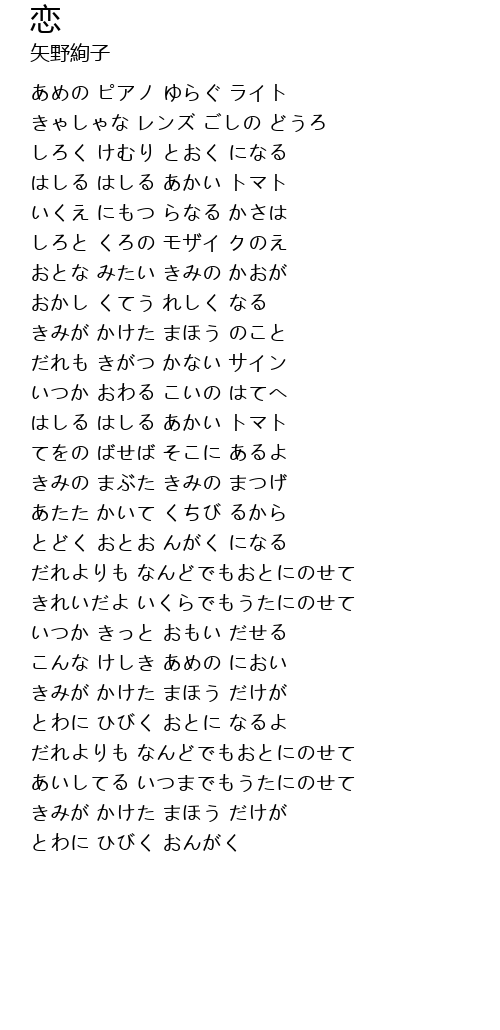 恋
矢野絢子
あめの ピアノ ゆらぐ ライト
きゃしゃな レンズ ごしの どうろ
しろく けむり とおく になる
はしる はしる あかい トマト
いくえ にもつ らなる かさは
しろと くろの モザイ クのえ
おとな みたい きみの かおが
おかし くてう れしく なる
きみが かけた まほう のこと
だれも きがつ かない サイン
いつか おわる こいの はてへ
はしる はしる あかい トマト
てをの ばせば そこに あるよ
きみの まぶた きみの まつげ
あたた かいて くちび るから
とどく おとお んがく になる
だれよりも なんどでもおとにのせて
きれいだよ いくらでもうたにのせて
いつか きっと おもい だせる
こんな けしき あめの におい
きみが かけた まほう だけが
とわに ひびく おとに なるよ
だれよりも なんどでもおとにのせて
あいしてる いつまでもうたにのせて
きみが かけた まほう だけが
とわに ひびく おんがく